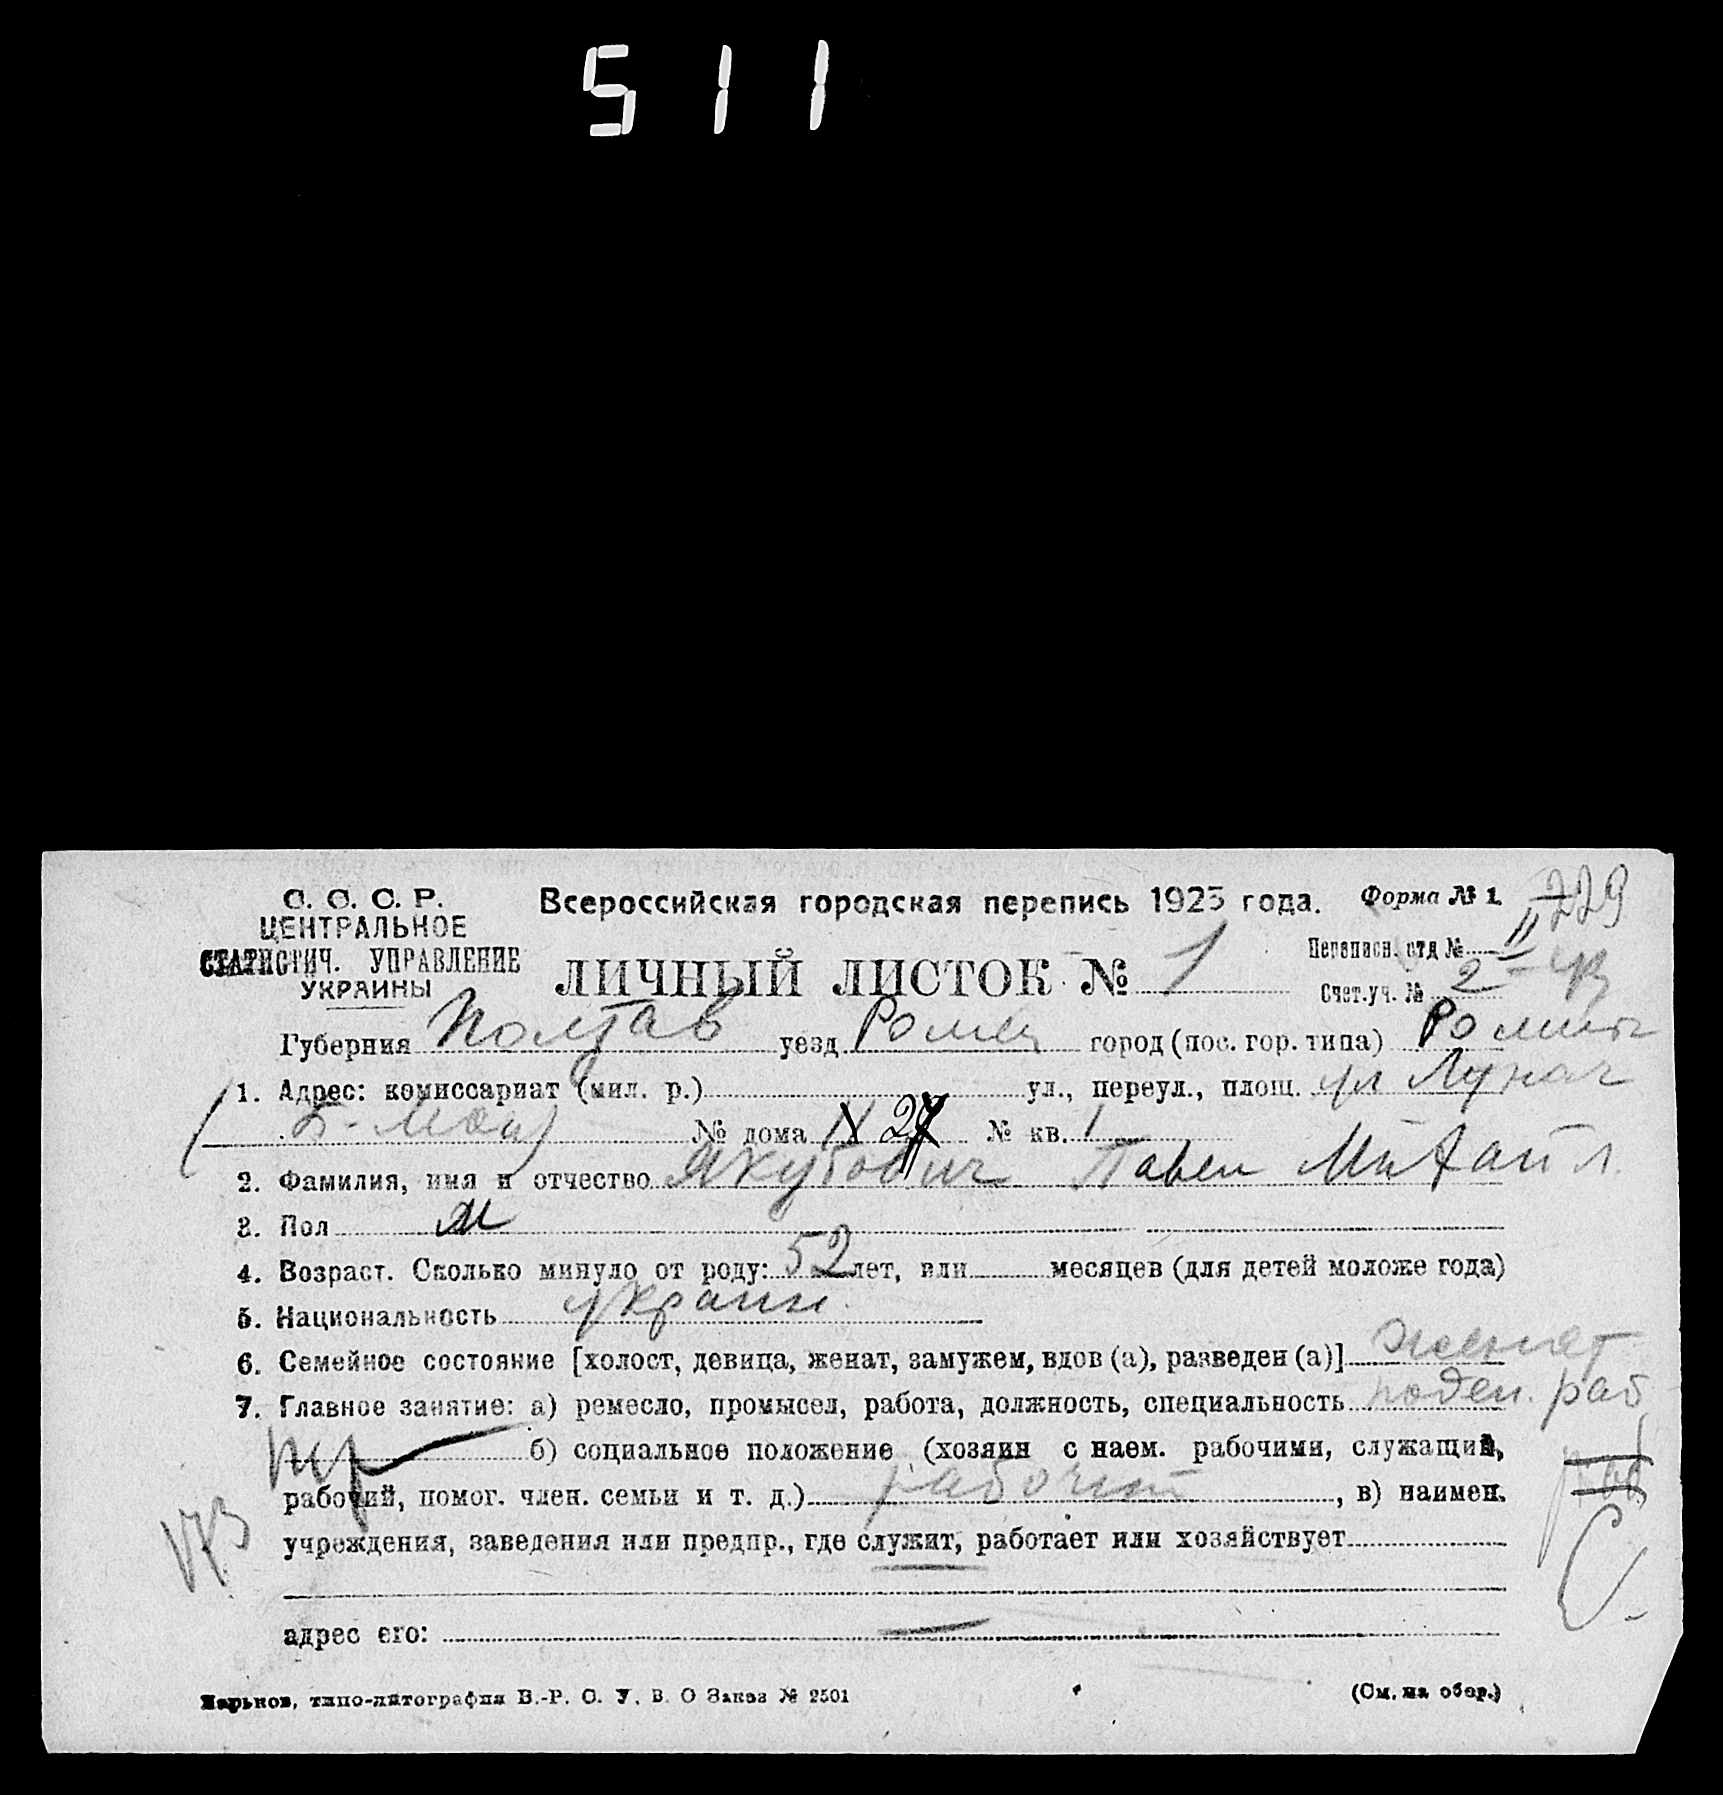 511
С. С. С. Р.
ЦЕНТРАЛЬНОЕ
СТАТИСТИЧ. УПРАВЛЕНИЕ
УКРАИНЫ
Всероссийская городская перепись 1923 года.
Форма № 1.
229
ЛИЧНЫЙ ЛИСТОК № 1
Переписн. отд № II
Счет.уч. № 2
Губерния Полтав уезд Ромен город (пос. гор. типа) Ромны
1. Адрес: комиссариат (мил. р.) ул., переул., площ. ул Лунач
№ дома 27 № кв. 1
2. Фамилия, имя и отчество Якубович Павел Михайл.
3. Пол М
4. Возраст. Сколько минуло от роду: 52 лет, или месяцев (для детей моложе года)
5. Национальность украин.
6. Семейное состояние [холост, девица, женат, замужем, вдов (а), разведен (а)] женат
7. Главное занятие: а) ремесло, промысел, работа, должность, специальность поден. раб
б) социальное положение (хозяин с наем. рабочими, служащий,
рабочий, помог. член. семьи и т. д.) рабочий, в) наимен.
173
учреждения, заведения или предпр., где служит, работает или хозяйствует
адрес его: —
Харьков, типо-литография В.-Р. С. У. В. О Заказ № 2501
(См. на обор.)